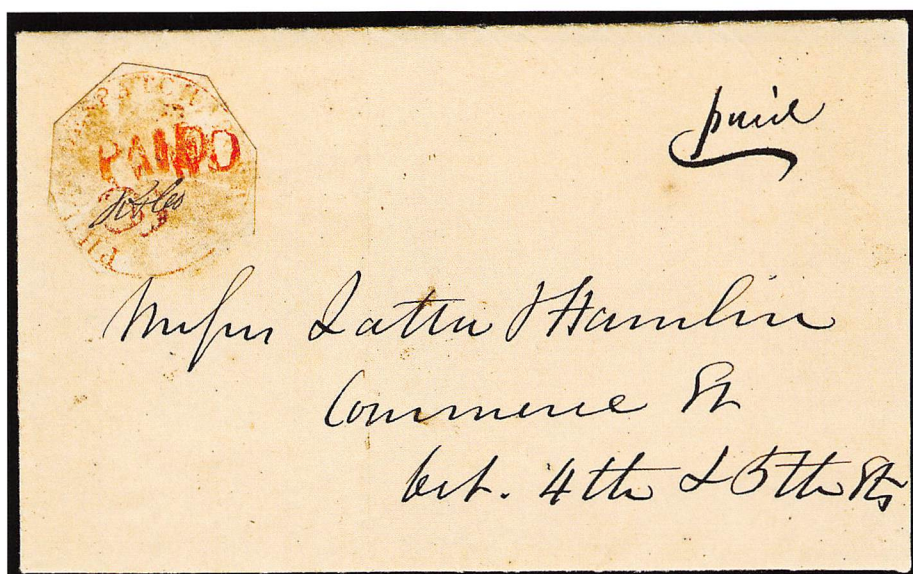 PATCH
PAID
paid
Messrs Latta & Hamlin
Commerce St
bet. 4th & 5th Sts